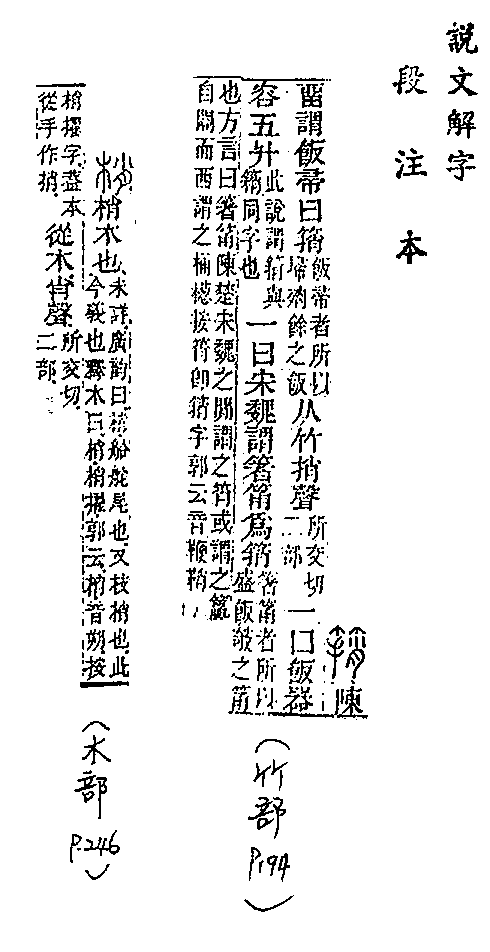 說文解字
段注本
陳
畱謂飯帚曰䈰飯帚者所以埽滌餘之飯从竹捎聲所交切二部一曰飯器
容五升此說謂䈰與筲同字也一曰宋魏謂箸筩爲䈰箸筩者所以盛飯㩻之筩
也方言曰箸筩陳楚宋魏之閒謂之筲或謂之籯
自關而西謂之桶檧按筲卽䈰字郭云音鞭鞘
(竹部 P.194)
梢木也未詳廣韵曰梢船舵尾也又枝梢也此今義也釋木曰梢梢擢郭云梢音朔按
梢擢字葢本從手作捎從木肖聲所交切二部
(木部 P.246)